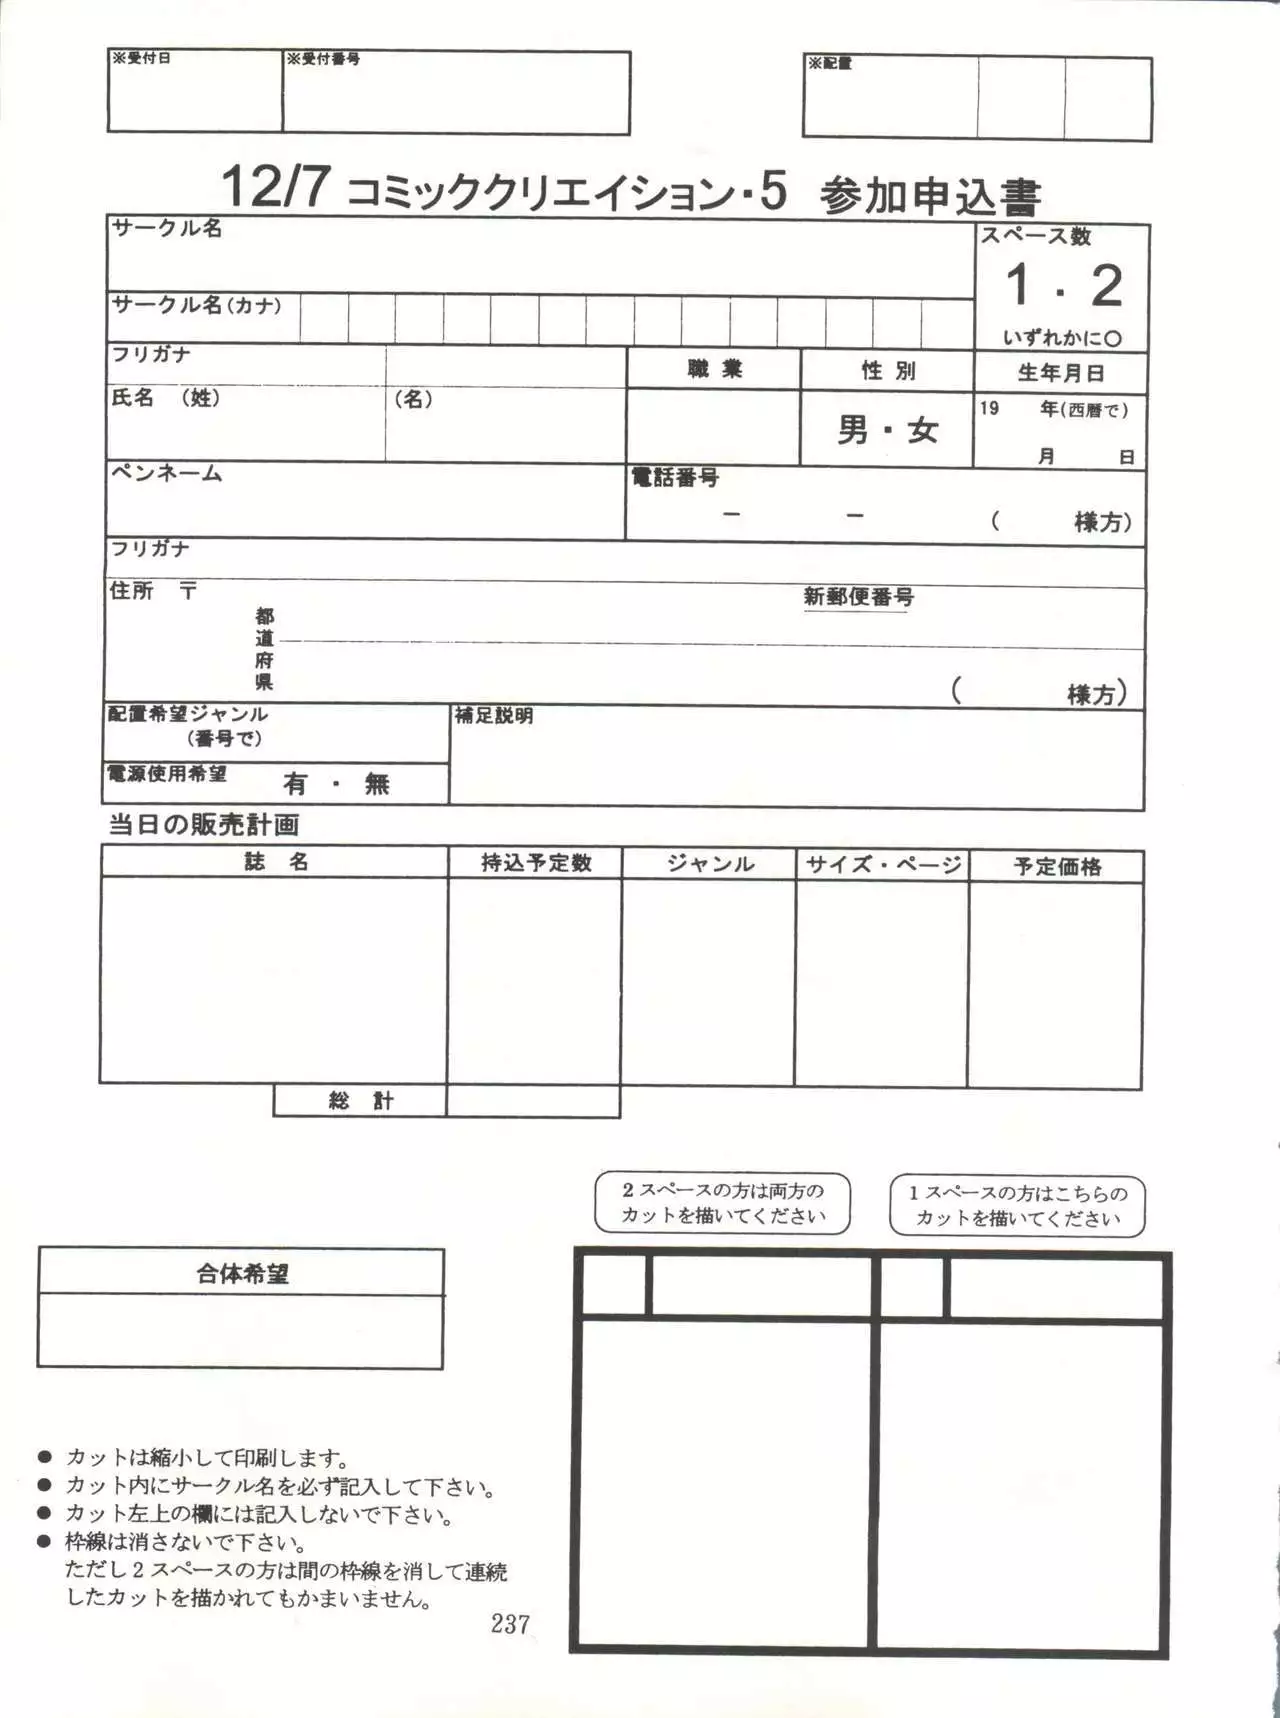 ※受付日 ※受付番号 ※配置
12/7 コミッククリエイション・5 参加申込書
サークル名
スペース数
1・2
いずれかに○
サークル名(カナ)
フリガナ
職業 性別 生年月日
氏名 (姓) (名)
男・女
19 年(西暦で)
月 日
ペンネーム
電話番号
－ － ( 様方)
フリガナ
住所 〒
新郵便番号
都道府県
( 様方)
配置希望ジャンル
(番号で)
補足説明
電源使用希望 有・無
当日の販売計画
誌名 持込予定数 ジャンル サイズ・ページ 予定価格
総計
2スペースの方は両方の
カットを描いてください
1スペースの方はこちらの
カットを描いてください
合体希望
● カットは縮小して印刷します。
● カット内にサークル名を必ず記入して下さい。
● カット左上の欄には記入しないで下さい。
● 枠線は消さないで下さい。
ただし2スペースの方は間の枠線を消して連続
したカットを描かれてもかまいません。
237